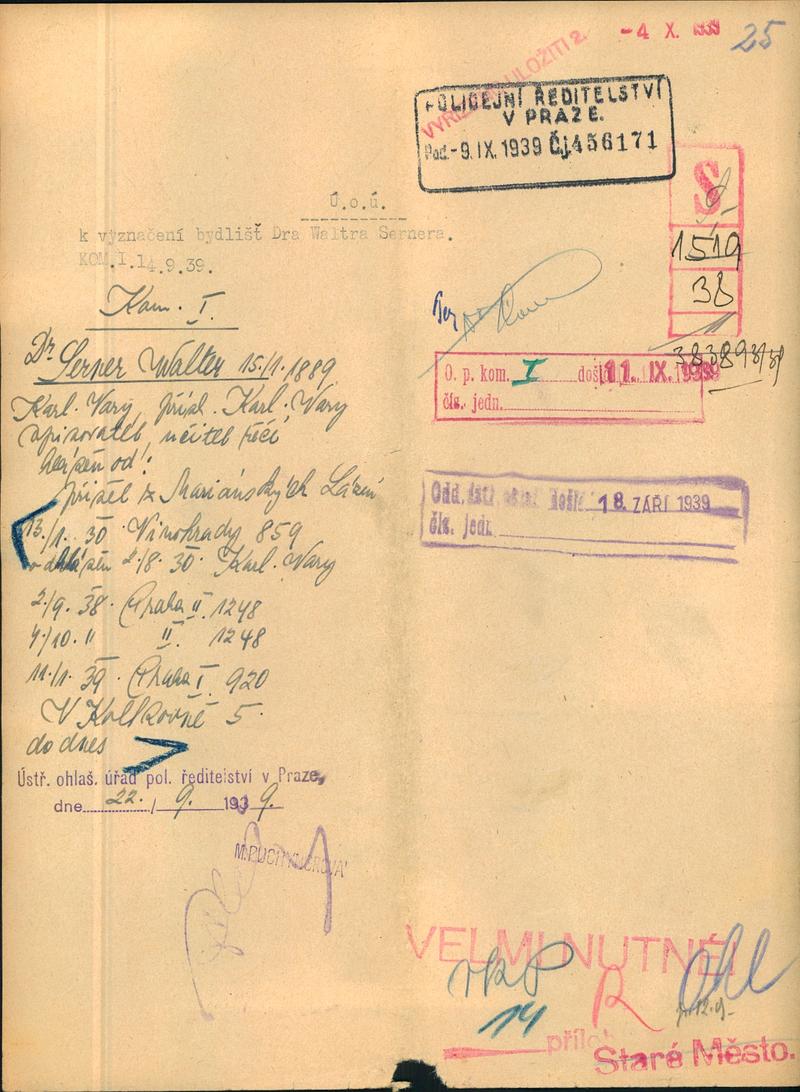 -4 X. 1939
25
POLICEJNÍ ŘEDITELSTVÍ
V PRAZE.
Pod.-9.IX.1939 Čj.456171
S
1519
38
38389
Ú.o.ú.
k vyznačení bydlišť Dra Waltra Sernera.
KOM.I.14.9.39.
Kom. I.
Dr Serner Walter 15./1. 1889
Karl. Vary, přísl. Karl. Vary
spisovatel, učitel řečí
hlášen od:
přišel z Mariánských Lázní
13./1. 30 Vinohrady 859
odhlášen 2/8. 30. Karl. Vary
2/9. 38. Praha II. 1248
4/10. " II. 1248
11/1. 39. Praha I. 920
V Kolkovně 5.
do dnes
Ústř. ohlaš. úřad pol. ředitelství v Praze,
dne 22. / 9. 1939.
O. p. kom. I došlo 11. IX. 1939
čís. jedn.
18. ZÁŘÍ 1939
čís. jedn.
VELMI NUTNÉ!
R
14
12.9.
příloh
Staré Město.